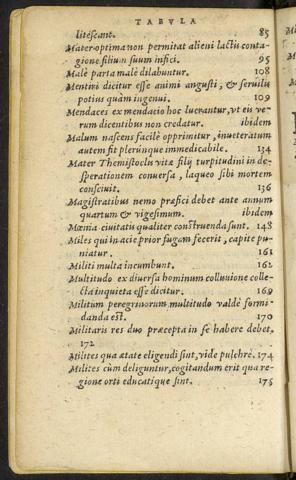 TABVLA
litescant. 85
Mater optima non permitat alieni lactis conta-
gione filium suum infici. 95
Malè parta malè dilabuntur. 108
Mentiri dicitur esse animi angusti, & seruilis
potius quàm ingenui. 109
Mendaces ex mendacio hoc lucrantur, vt eis ve-
rum dicentibus non credatur. ibidem
Malum nascens facilè opprimitur, inueteratum
autem fit plerunque immedicabile. 134
Mater Themistoclis vitæ filij turpitudini in de-
sperationem conuersa, laqueo sibi mortem
consciuit. 136
Magistratibus nemo præfici debet ante annum
quartum & vigesimum. ibidem
Mœnia ciuitatis qualiter construenda sunt. 148
Miles qui in acie prior fugam fecerit, capite pu-
niatur. 161
Militi multa incumbunt. 162
Multitudo ex diuersa hominum colluuione colle-
cta inquieta esse dicitur. 169
Militum peregrinorum multitudo valdè formi-
danda est. 170
Militaris res duo præcepta in se habere debet,
172
Milites qua ætate eligendi sint, vide pulchrè. 174
Milites cùm deliguntur, cogitandum erit qua re-
gione orti educatique sint. 175